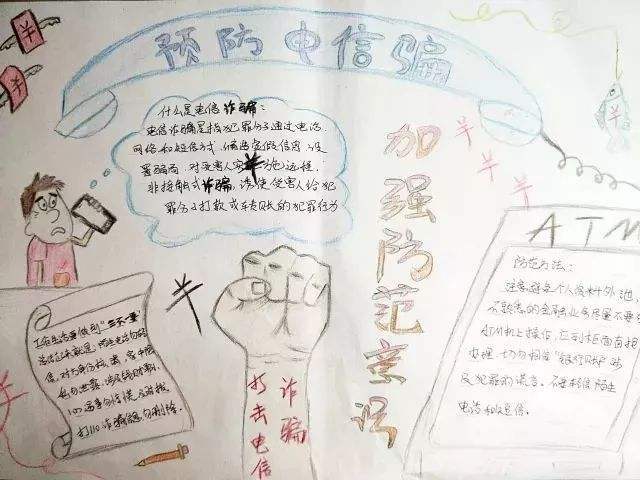 预防电信骗
什么是电信诈骗：
电信诈骗是指犯罪分子通过电话、
网络和短信方式，编造虚假信息，设
置骗局，对受害人实施远程、
非接触式诈骗，诱使受害人给犯
罪分子打款或转账的犯罪行为
加强防范意识
ATM
防范方法：
注意避免个人资料外泄
不熟悉的金融业务尽量不要在
ATM机上操作，应到柜面直接
办理，切勿相信"银行账户涉
及犯罪的谎言，不要相信陌生
电话和短信。
工作生活要做到"三不一要"
打110诈骗信息勿删除。
诈骗
打击电信